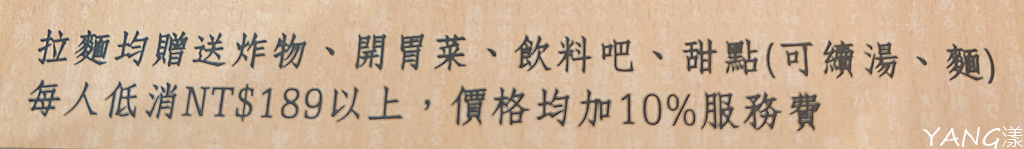 拉麵均贈送炸物、開胃菜、飲料吧、甜點(可續湯、麵)
每人低消NT$189以上，價格均加10%服務費
YANG漾